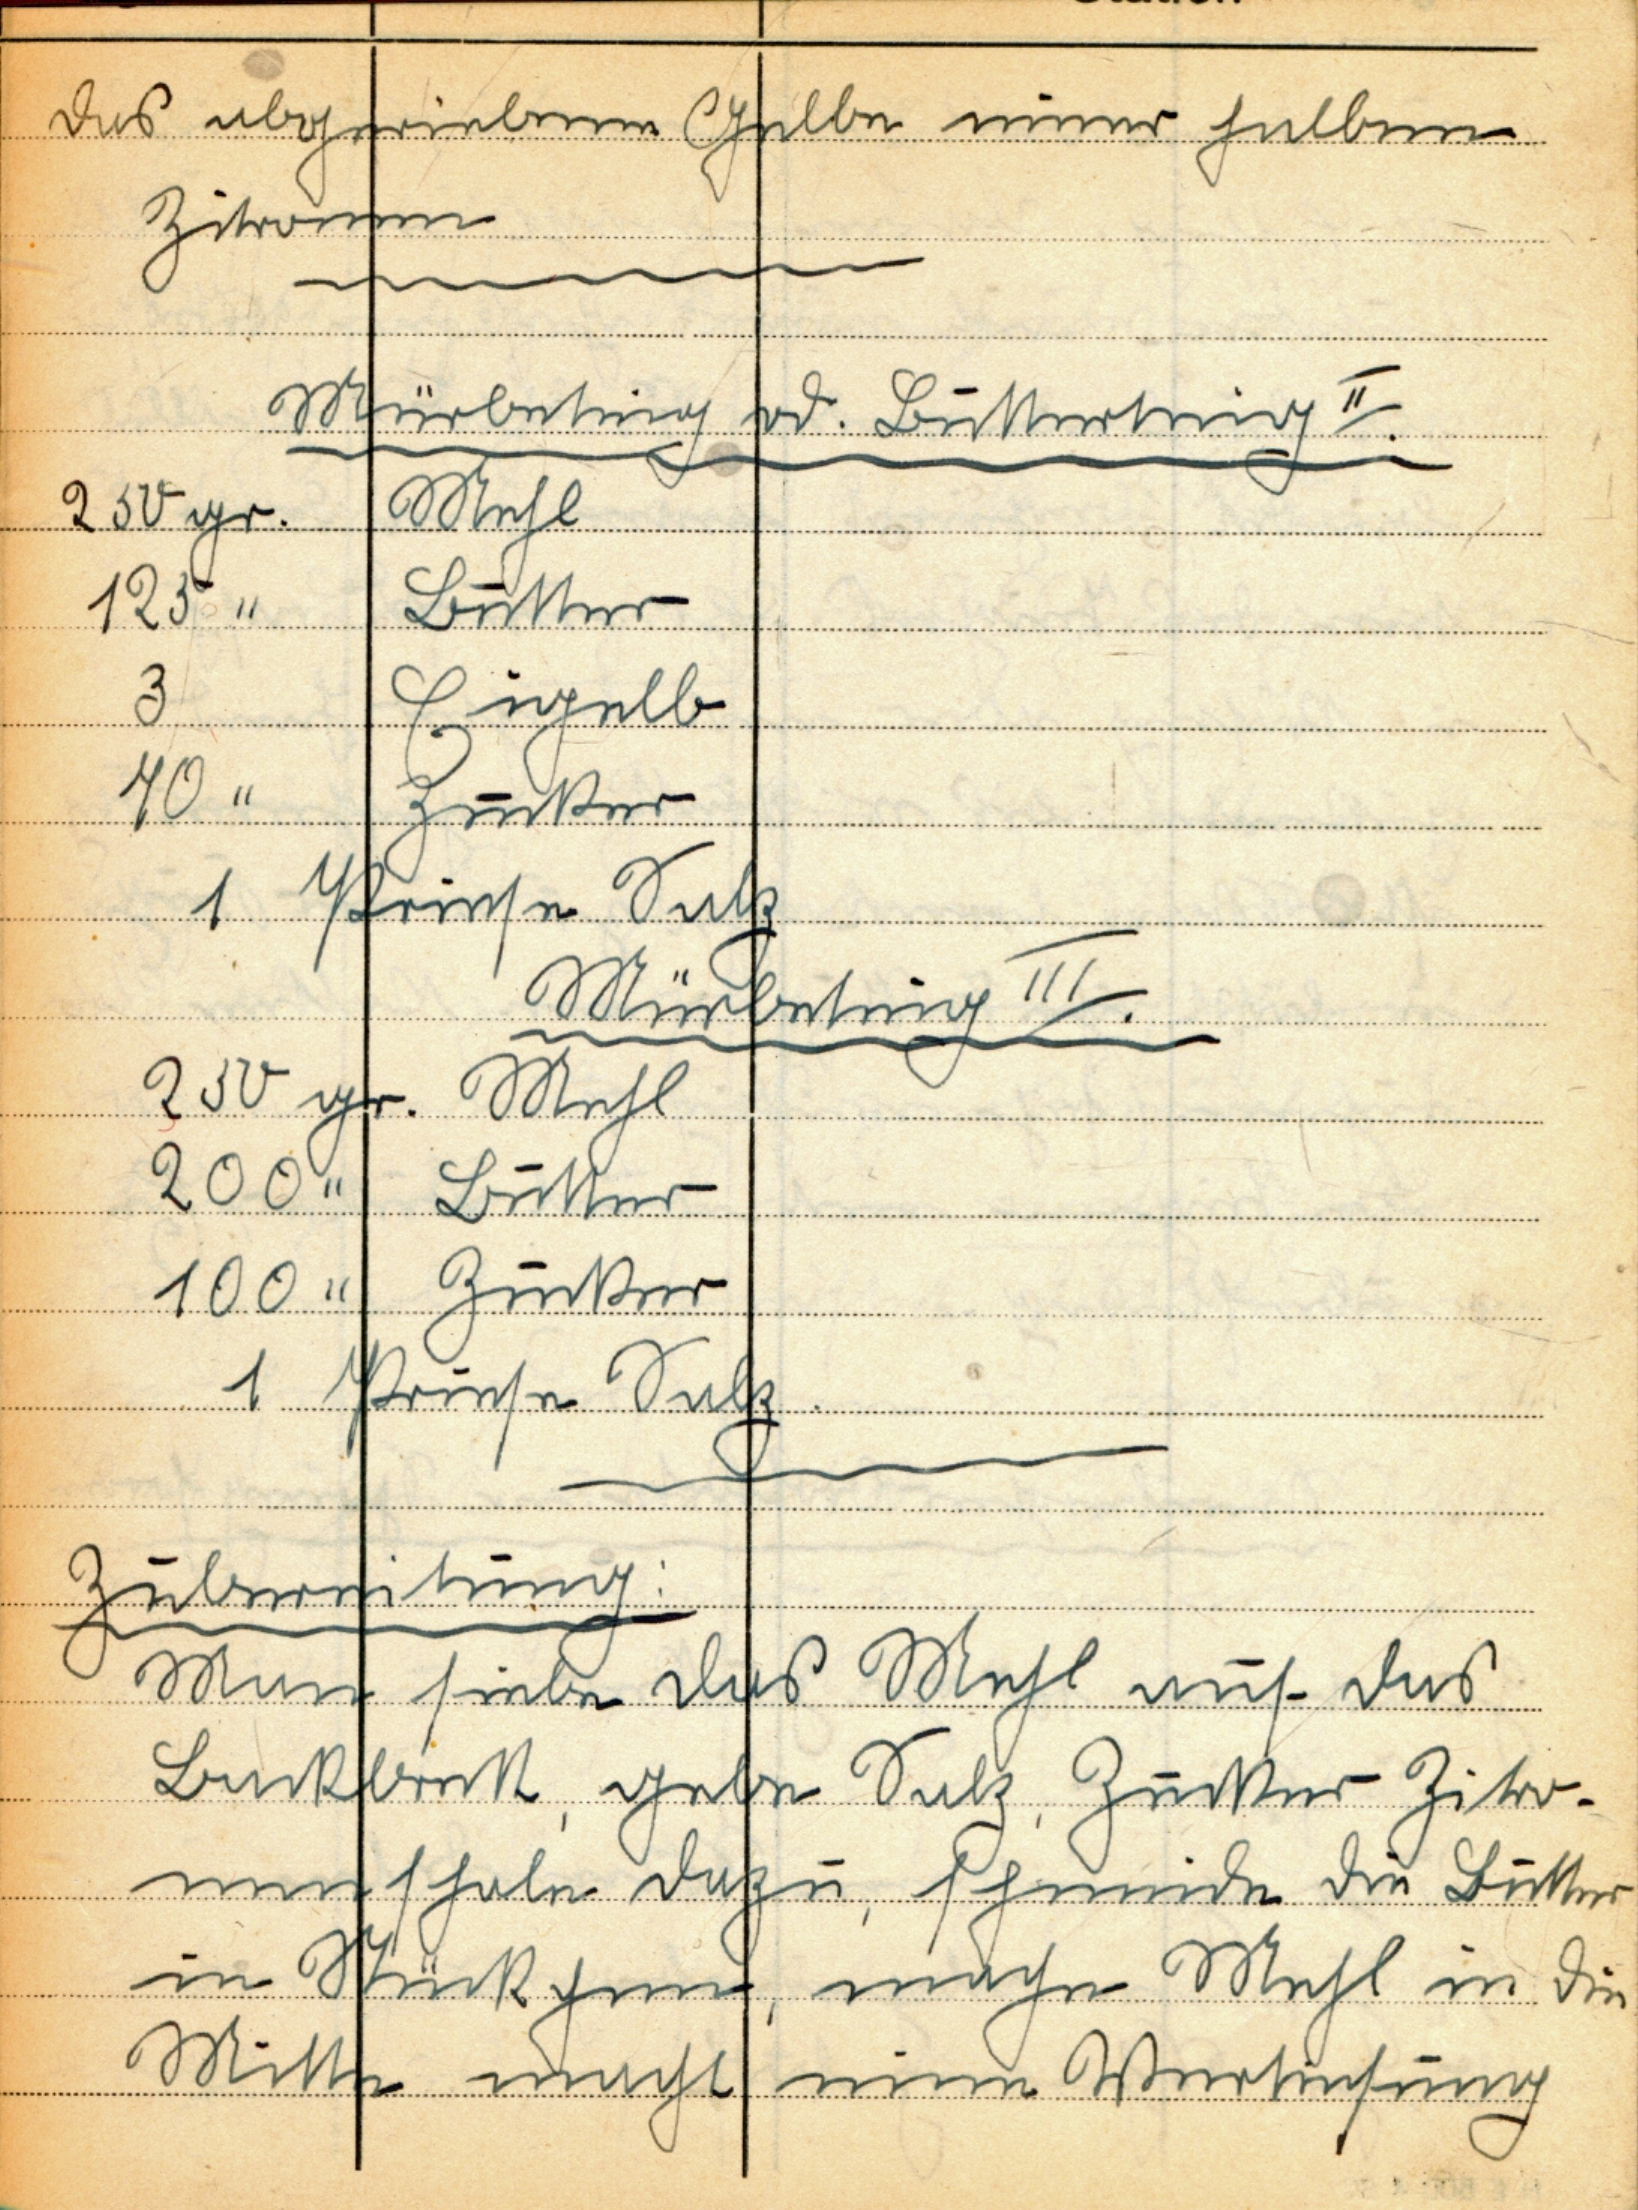 Station
Das abgeriebene Gelbe einer halben
Zitronen
Mürbeteig od. Butterteig II.
250 gr. Mehl
125 " Butter
3 Eigelb
70 " Zucker
1 Priese Salz
Mürbeteig III.
250 gr. Mehl
200 " Butter
100 " Zucker
1 Priese Salz.
Zubereitung:
Man siebe das Mehl auf das
Backbrett, gebe Salz, Zucker Zitro-
nenschale dazu, schneide die Butter
in Stückchen, mache Mehl in die
Mitte macht eine Vertiefung